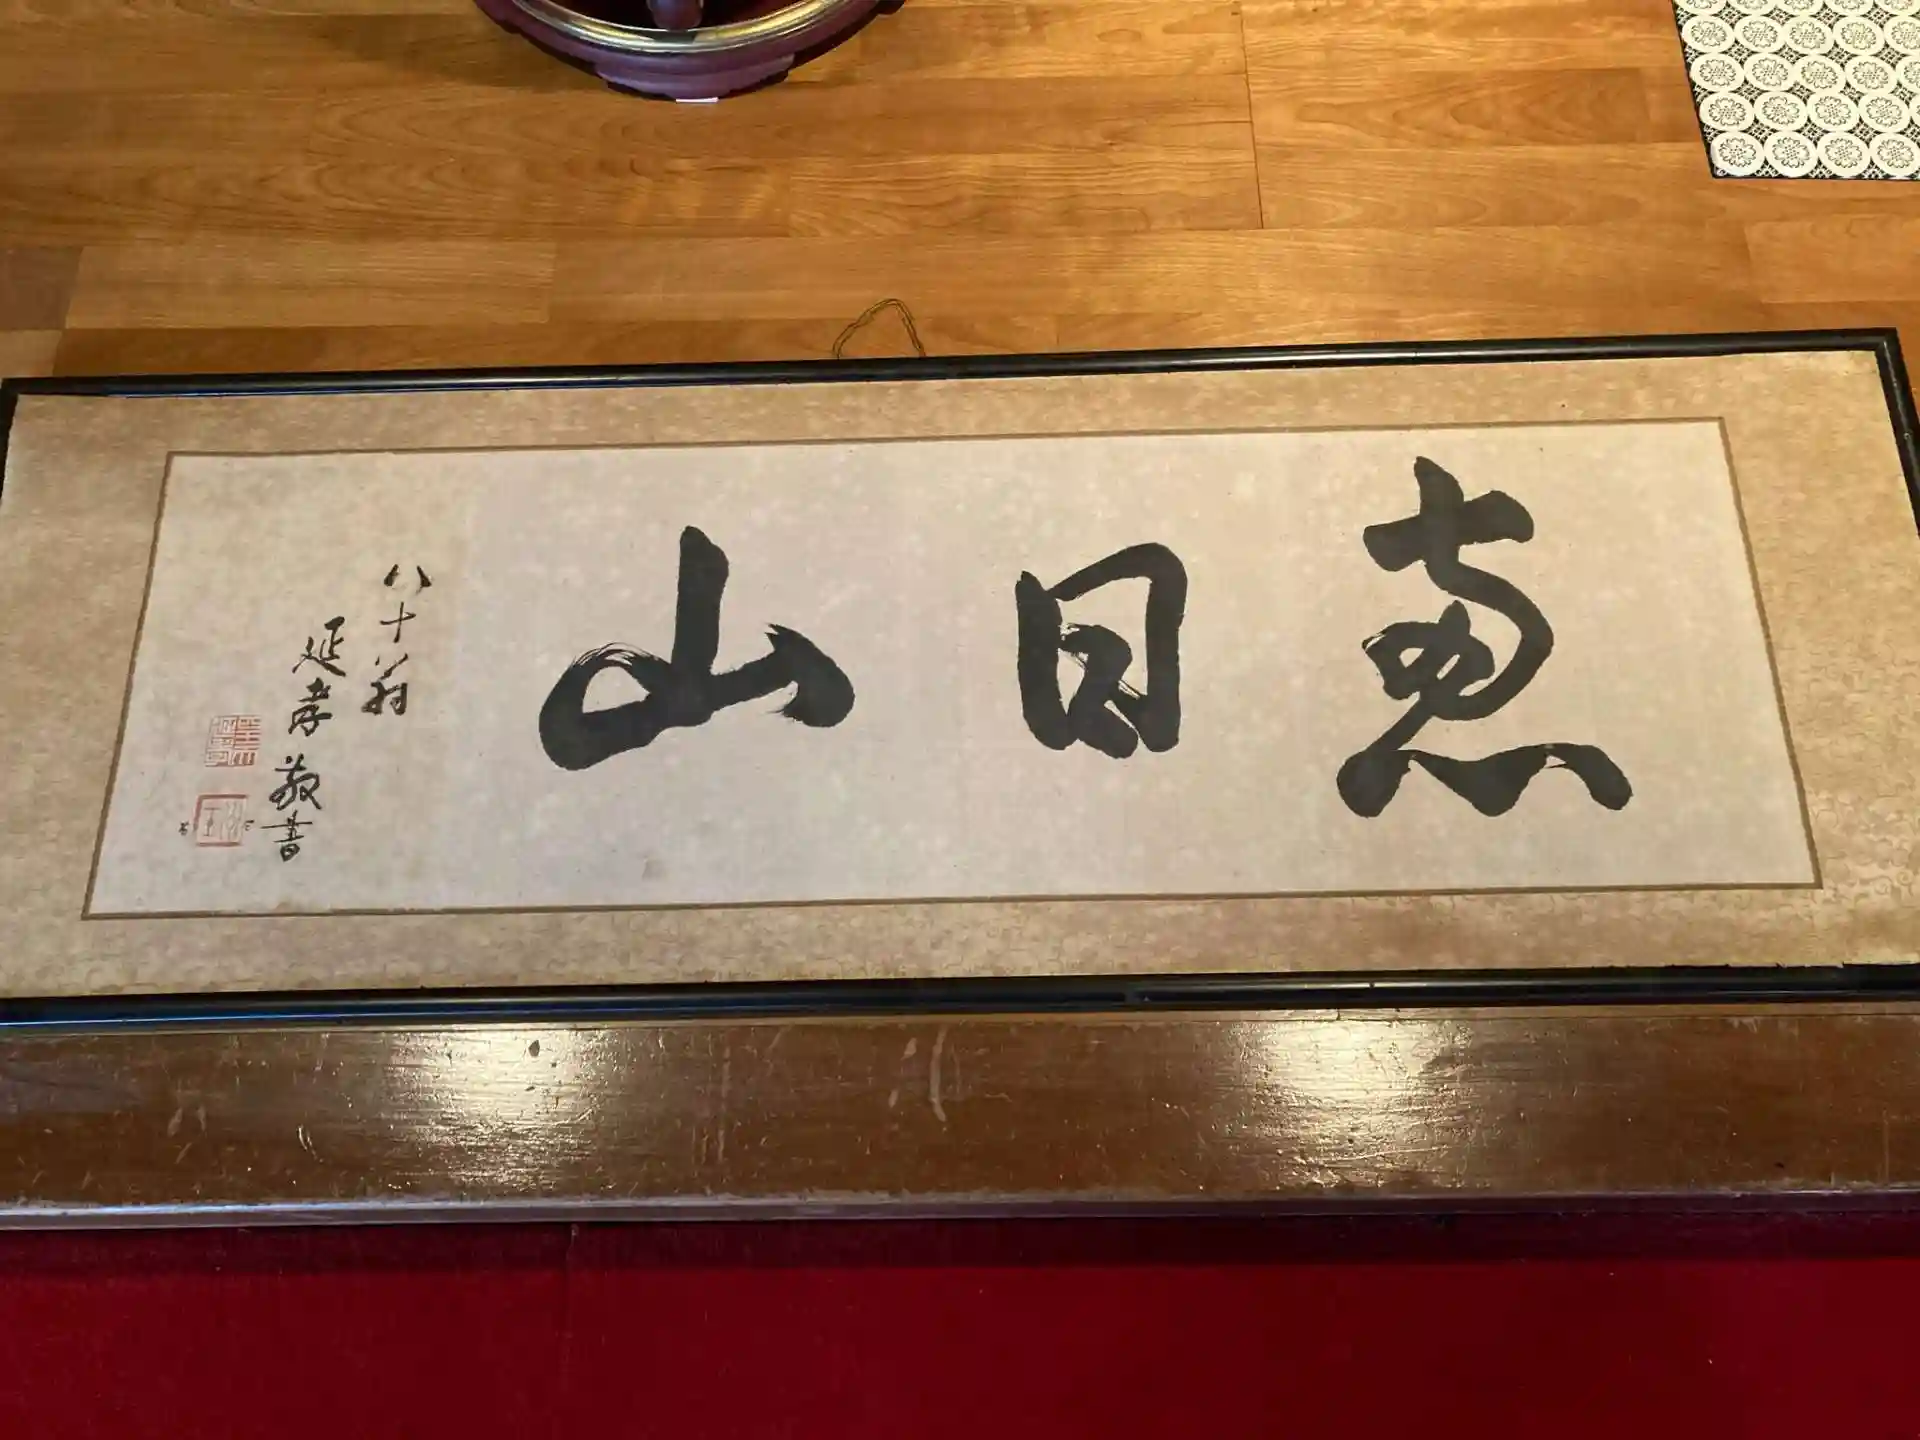 恵日山
八十八翁
延孝敬書